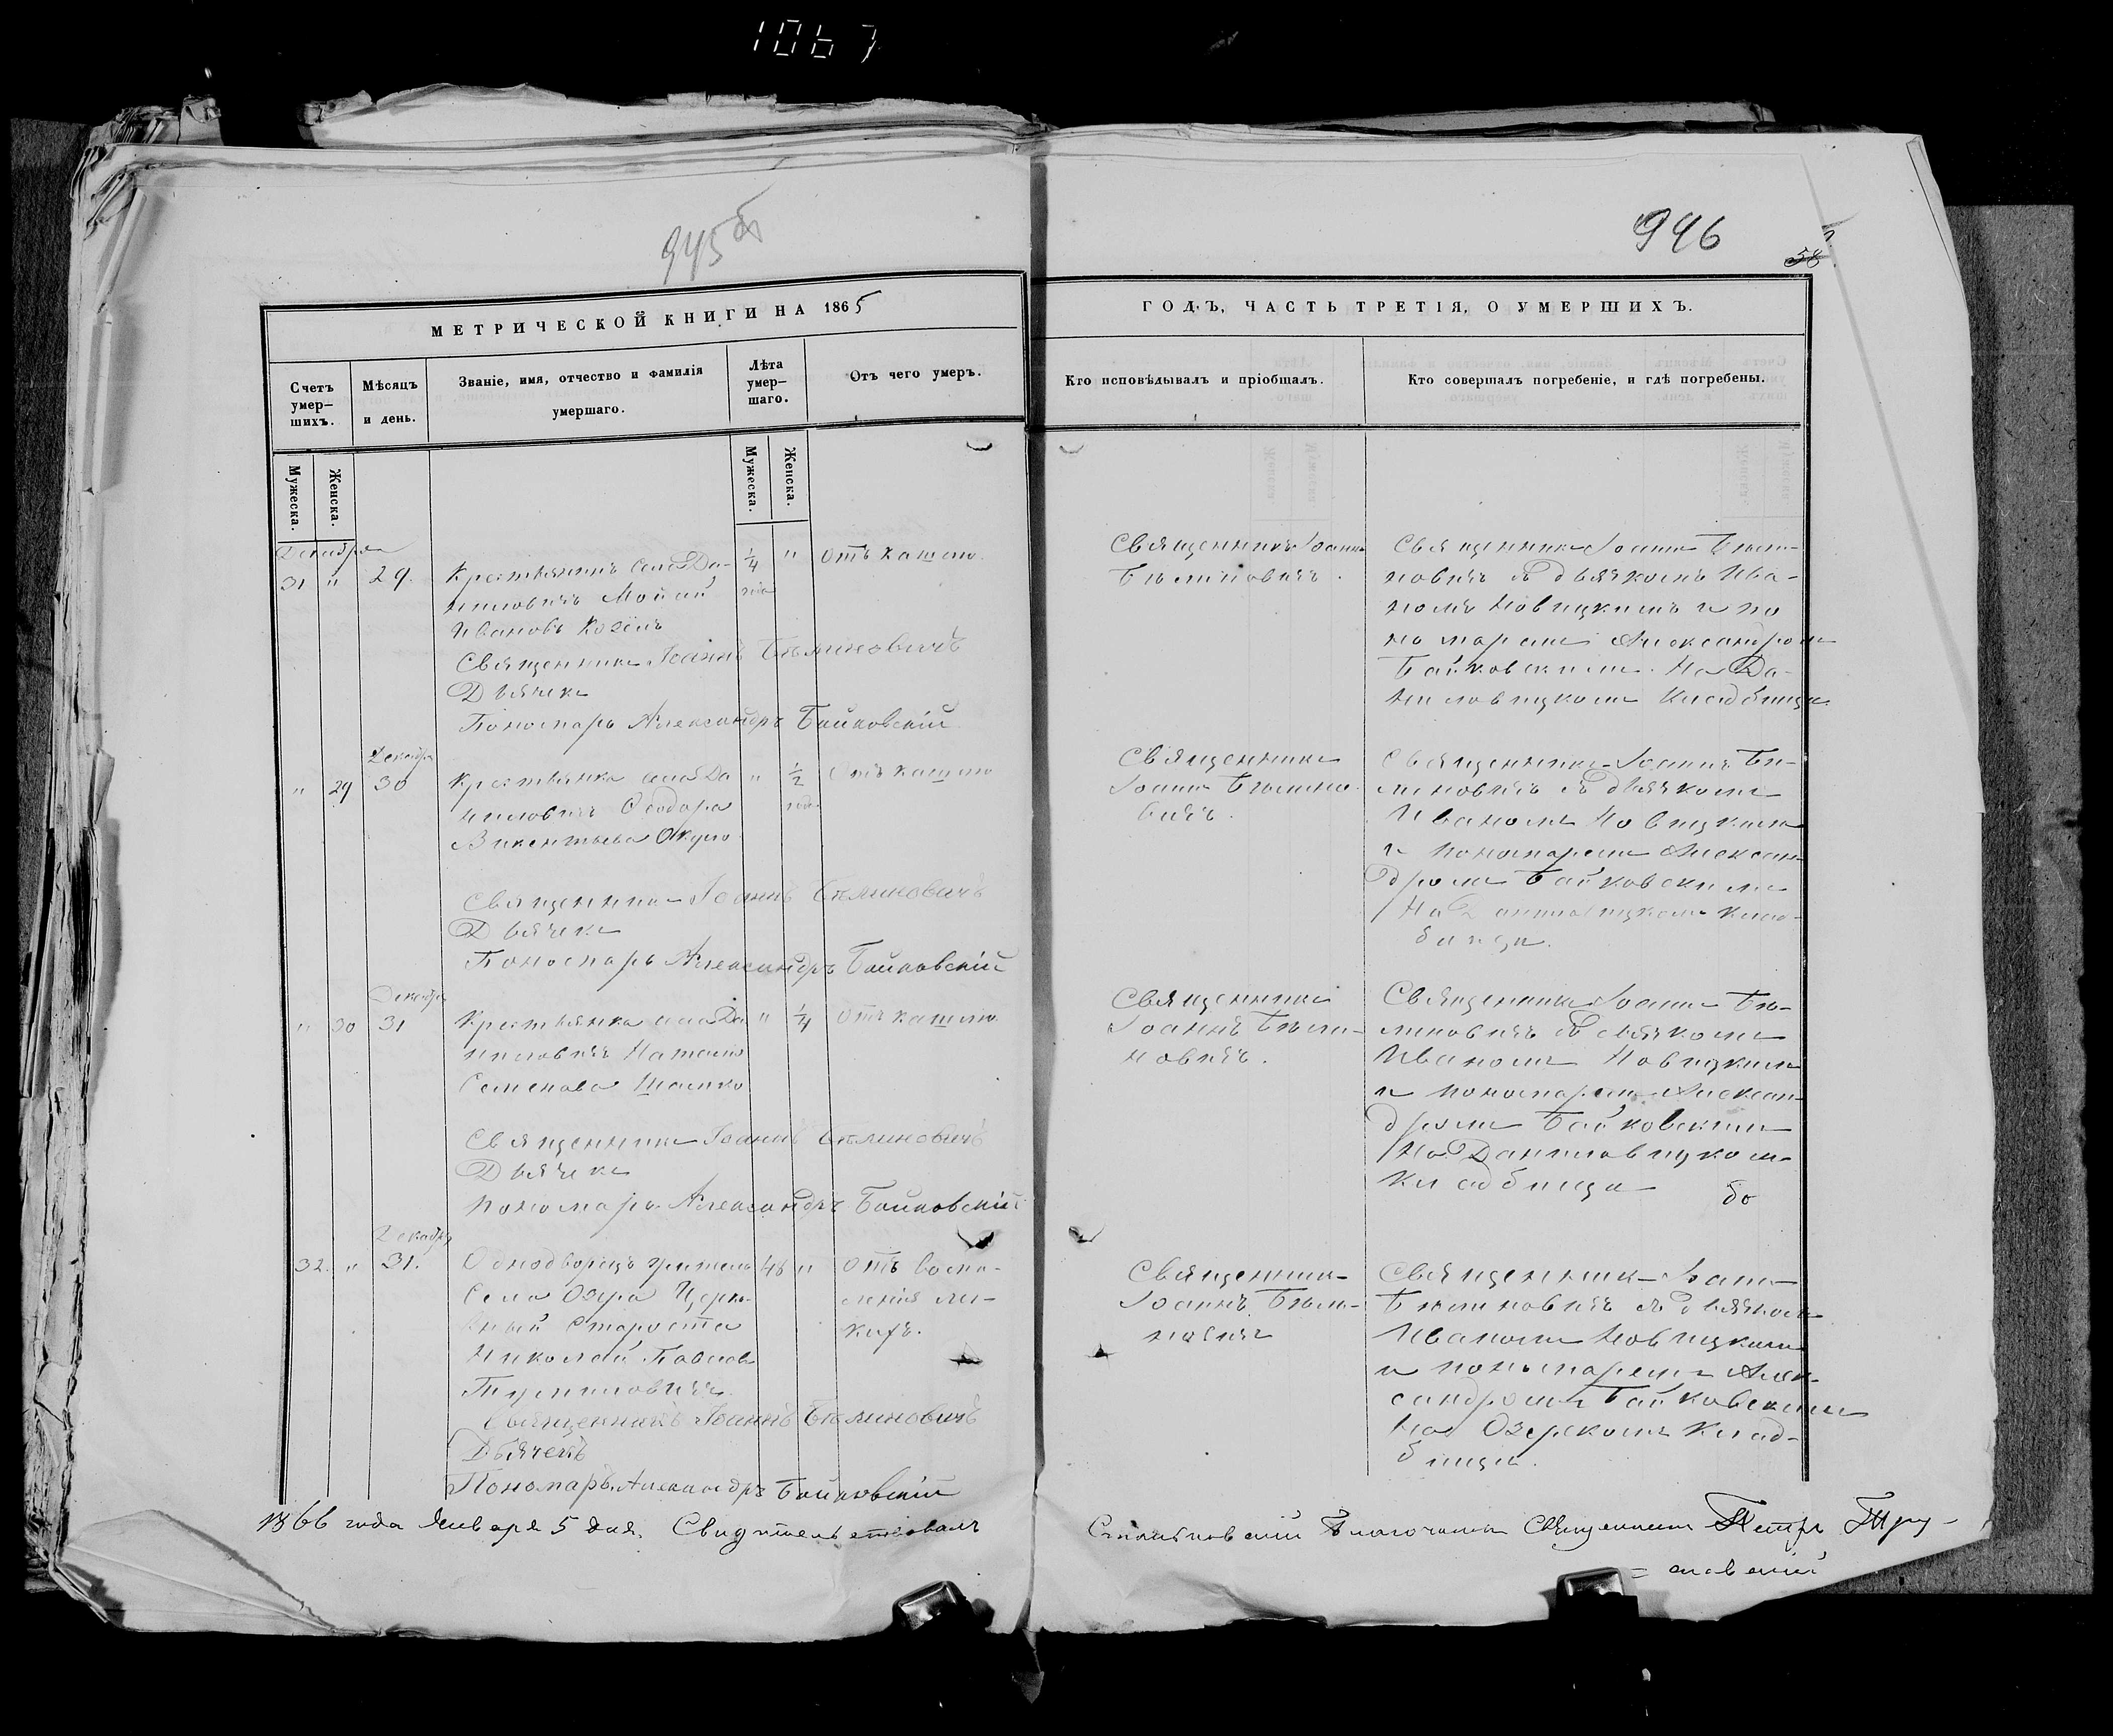 1067
945 об
946
58
МЕТРИЧЕСКОЙ КНИГИ НА 1865
ГОДЪ, ЧАСТЬ ТРЕТІЯ, О УМЕРШИХЪ.
Счетъ умер–шихъ.
Мѣсяцъ и день.
Званіе, имя, отчество и фамилія умершаго.
Лѣта умер–шаго.
Отъ чего умеръ.
Кто исповѣдывалъ и пріобщалъ.
Кто совершалъ погребеніе, и гдѣ погребены.
Мужеска.
Женска.
Мужеска.
Женска.
Декабря
31 " 29. Крестьянинъ села Да-
ниловичъ
Ивановъ Козелъ
1/4 года " отъ кашлю
Священникъ Іоаннъ Бѣлиновичъ
Дьячекъ
Пономарь Александръ Байковскій
Священникъ Іоаннъ
Бѣлиновичъ.
Священникъ Іоаннъ Бѣли-
новичъ съ дьячкомъ Ива-
номъ Новицкимъ и по
номаремъ Александромъ
Байковскимъ. На Да-
ниловицкомъ кладбищи
Декабря
" 29 30 Крестьянка села Да
ниловичъ Ѳеодора
Викентьева
" 1/2 года Отъ кашлю
Священникъ Іоаннъ Бѣлиновичъ
Дьячекъ
Пономарь Александръ Байковскій
Священникъ
Іоаннъ Бѣлино-
вичъ.
Священникъ Іоаннъ Бѣ-
линовичъ съ дьячкомъ
Иваномъ Новицкимъ
и пономаремъ Алексан-
дромъ Байковскимъ
На Даниловицкомъ клад-
бищи.
Декабря
" 30 31 Крестьянка села Да
ниловичъ Наталія
Семенова
" 1/4 отъ кашлю
Священникъ Іоаннъ Бѣлиновичъ
Дьячекъ
Пономарь Александръ Байковскій
Священникъ
Іоаннъ Бѣли-
новичъ.
Священникъ Іоаннъ Бѣ-
линовичъ съ дьячкомъ
Иваномъ Новицкимъ
и пономаремъ Алексан-
дромъ Байковскимъ
На Даниловицкомъ
кладбищи
Декабря
32. " 31. Однодворецъ житель
Села Озера Церко-
вный Староста
Николай Павловъ
48 " Отъ воспа-
ленія лег-
кихъ.
Священникъ Іоаннъ Бѣлиновичъ
Дьячекъ
Пономарь Александръ Байковскій
Священникъ
Іоаннъ Бѣли-
новичъ
Священникъ Іоаннъ
Бѣлиновичъ съ дьячкомъ
Иваномъ Новицкимъ
и пономаремъ Алек-
сандромъ Байковскимъ
На Озерскомъ клад-
бищи.
1866 года Января 5 дня. Свидѣтельствовалъ
Благочинный Священникъ Петръ